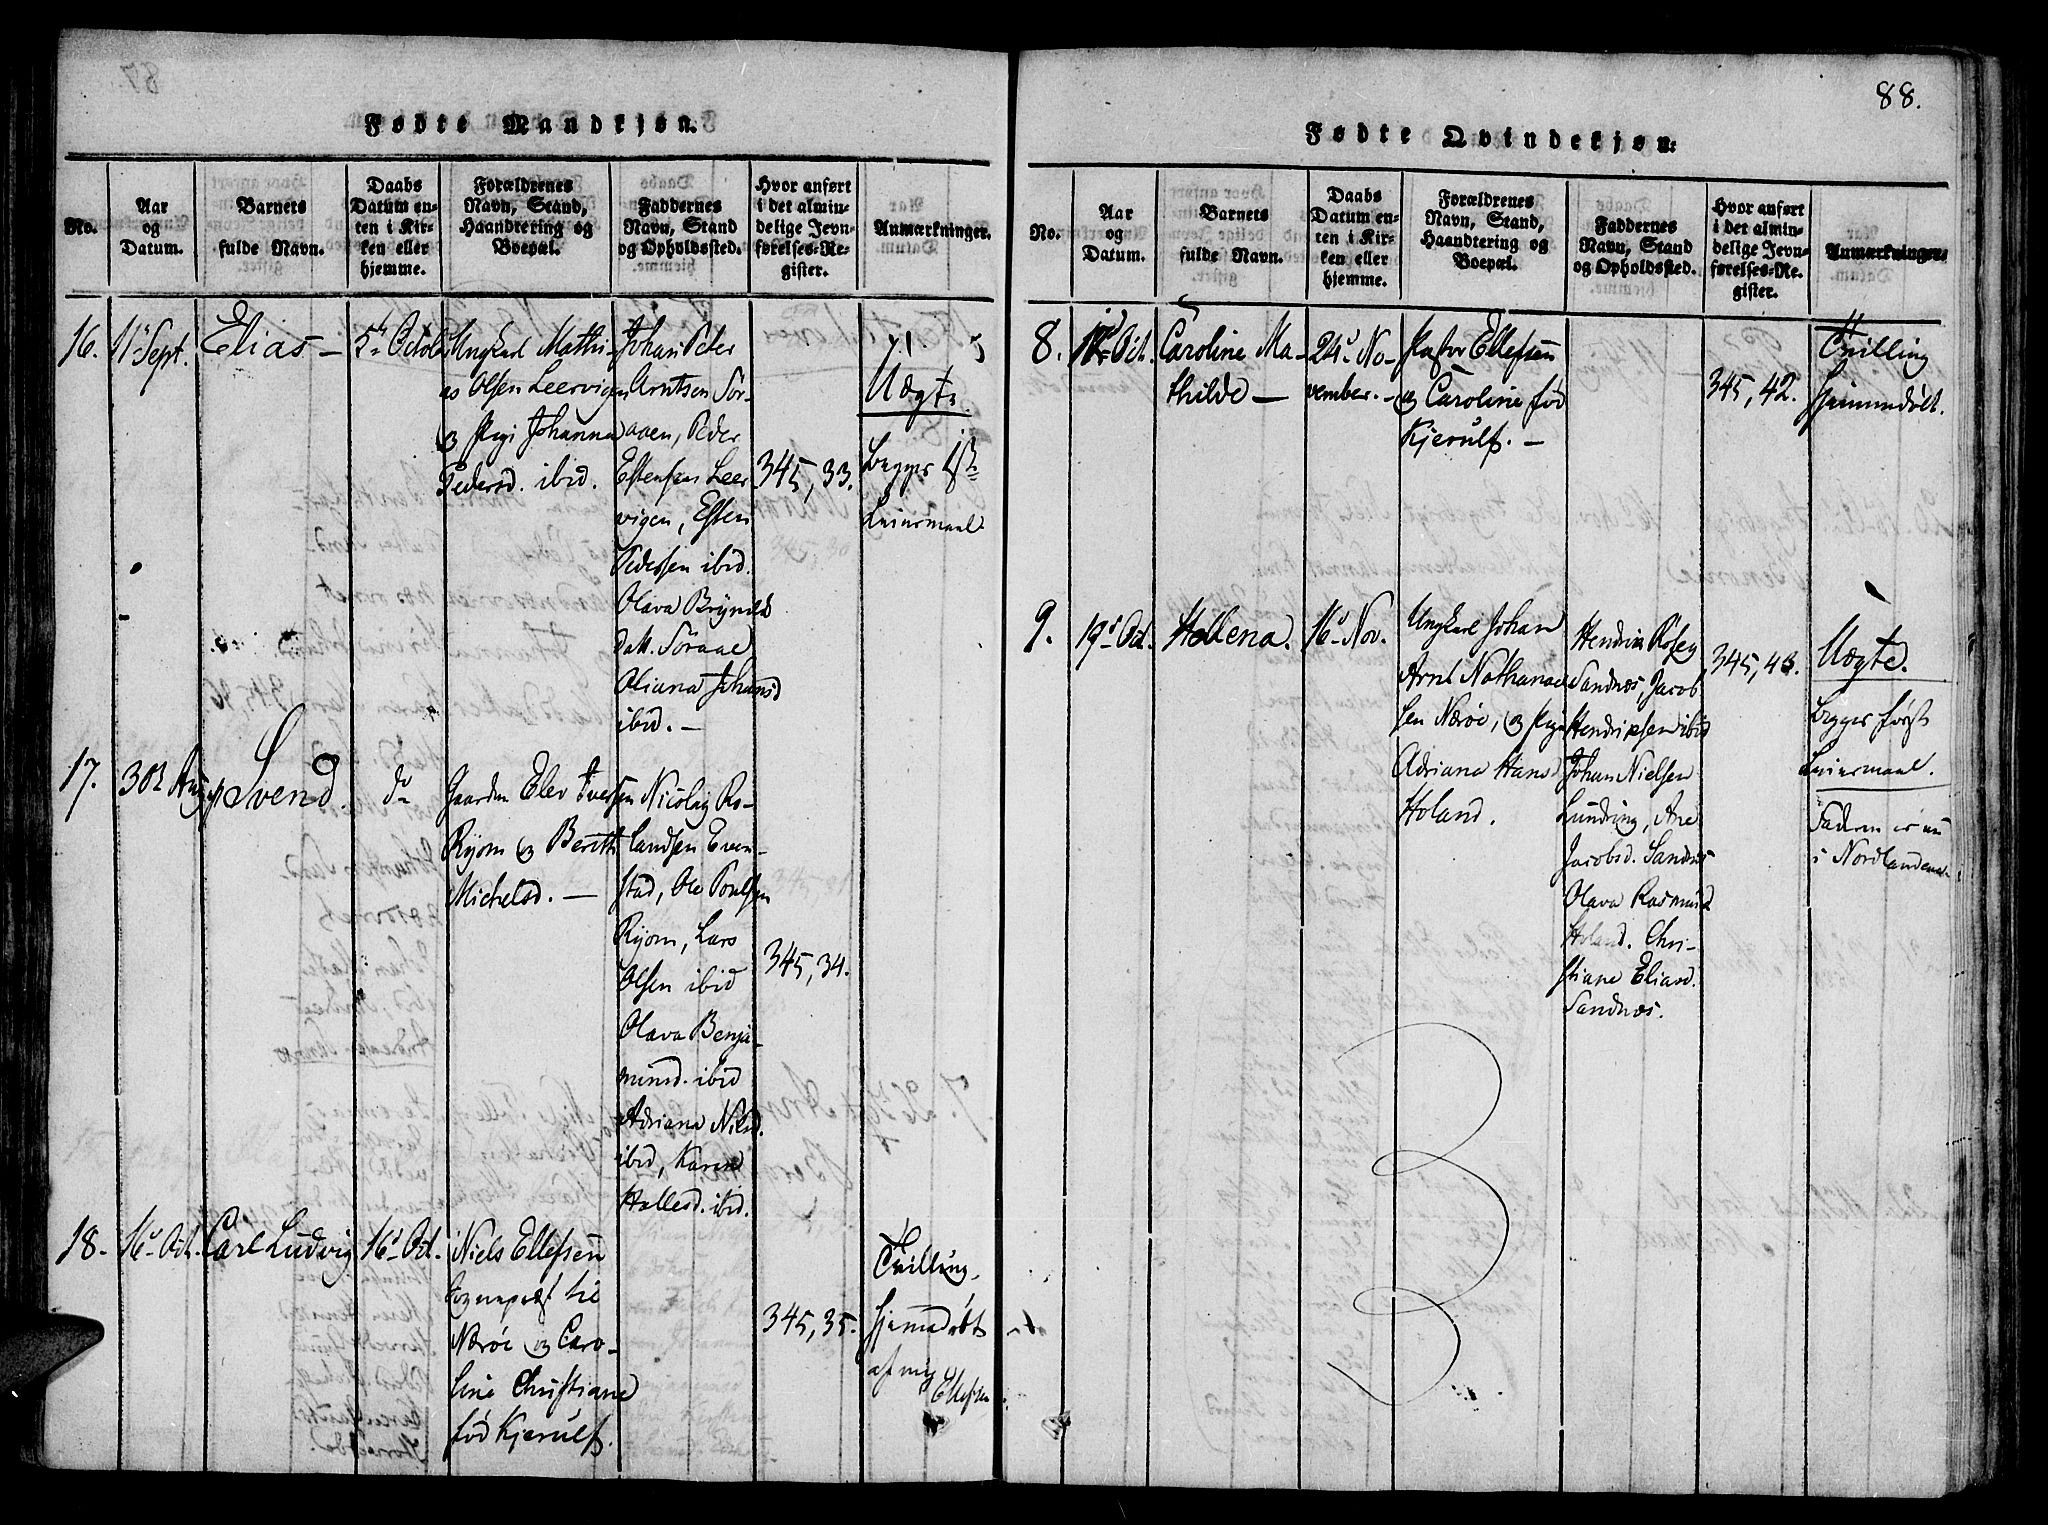 88.
Fødte Mandkjøn.
No.
Aar
og
Datum.
Barnets
fulde Navn.
Daabs
Datum en-
ten i Kir-
ken eller
hjemme.
Forældrenes
Navn, Stand,
Haandtering og
Boepæl.
Faddernes
Navn, Stand
og Opholdssted.
Hvor anført
i det almin-
delige Jevn-
førelses-Re-
gister.
Anmærkninger.
16.
11 Sept.
Elias –
5 Octob
Ungkarl Mathi-
as Olsen Leervigen
og Pige Johanna
Pedersd. ibid.
Johan Peter
Arntsen Sør-
aaen, Peder
Estensen Leer
vigen, Esten
Pedersen ibid.
Olava Brynilds
datt. Søraae
Oliana Johansd
ibid. –
345, 33.
Uægte
begges 1ste
Leiermaal.
17.
30 Aug
Svend.
do
Gaardm. Elev Iversen
Ryom og Bereth
Michelsd. –
Nicolay Ro-
landsen Even-
stad, Ole Poulsen
Ryom, Lars
Olsen ibid
Olava Benja-
minsd. ibid
Adriana Nilsd.
ibid, Karen
Hallesd. ibid.
345, 34.
18.
16 Oct.
Carl Ludvig
16 Oct.
Niels Ellefsen
Sognepræst til
Nærøe og Caro-
line Christiane
fød Kjerulf.
345, 35.
Tvilling,
hjemmedøbt
af mig
Ellefsen
Fødte Qvindekjøn:
No.
Aar
og
Datum.
Barnets
fulde Navn.
Daabs
Datum en-
ten i Kir-
ken eller
hjemme.
Forældrenes
Navn, Stand,
Haandtering og
Boepæl.
Faddernes
Navn, Stand
og Opholdssted.
Hvor anført
i det almin-
delige Jevn-
førelses-Re-
gister.
Anmærkninger.
8.
Oct.
Caroline Ma-
thilde –
24 No-
vember. –
Pastor Ellefsen
og Caroline fød
Kjerulf. –
345, 42.
Tvilling
hjemmedøbt.
9.
19 Oct.
Hellena.
16 Nov.
Ungkarl Johan
Arnt Nathanael
sen Nærøe, og Pige
Adriana Hansd
Holand.
Hendrik Rosey
Sandnæs, Jacob
Hendriksen ibid
Johan Nielsen
Lundring, Ane
Jacobsd. Sandnæs
Olava Rasmusd
Holand. Chri-
stiane Eliasd.
Sandnæs.
345, 43.
Uægte.
begges først
Leiermaal.
Faderen er nu
i Nordlandene.